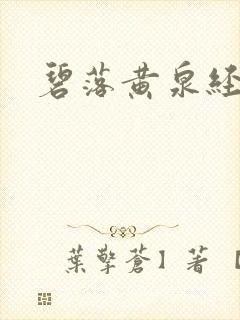 碧落黄泉経
葉擎蒼】著【